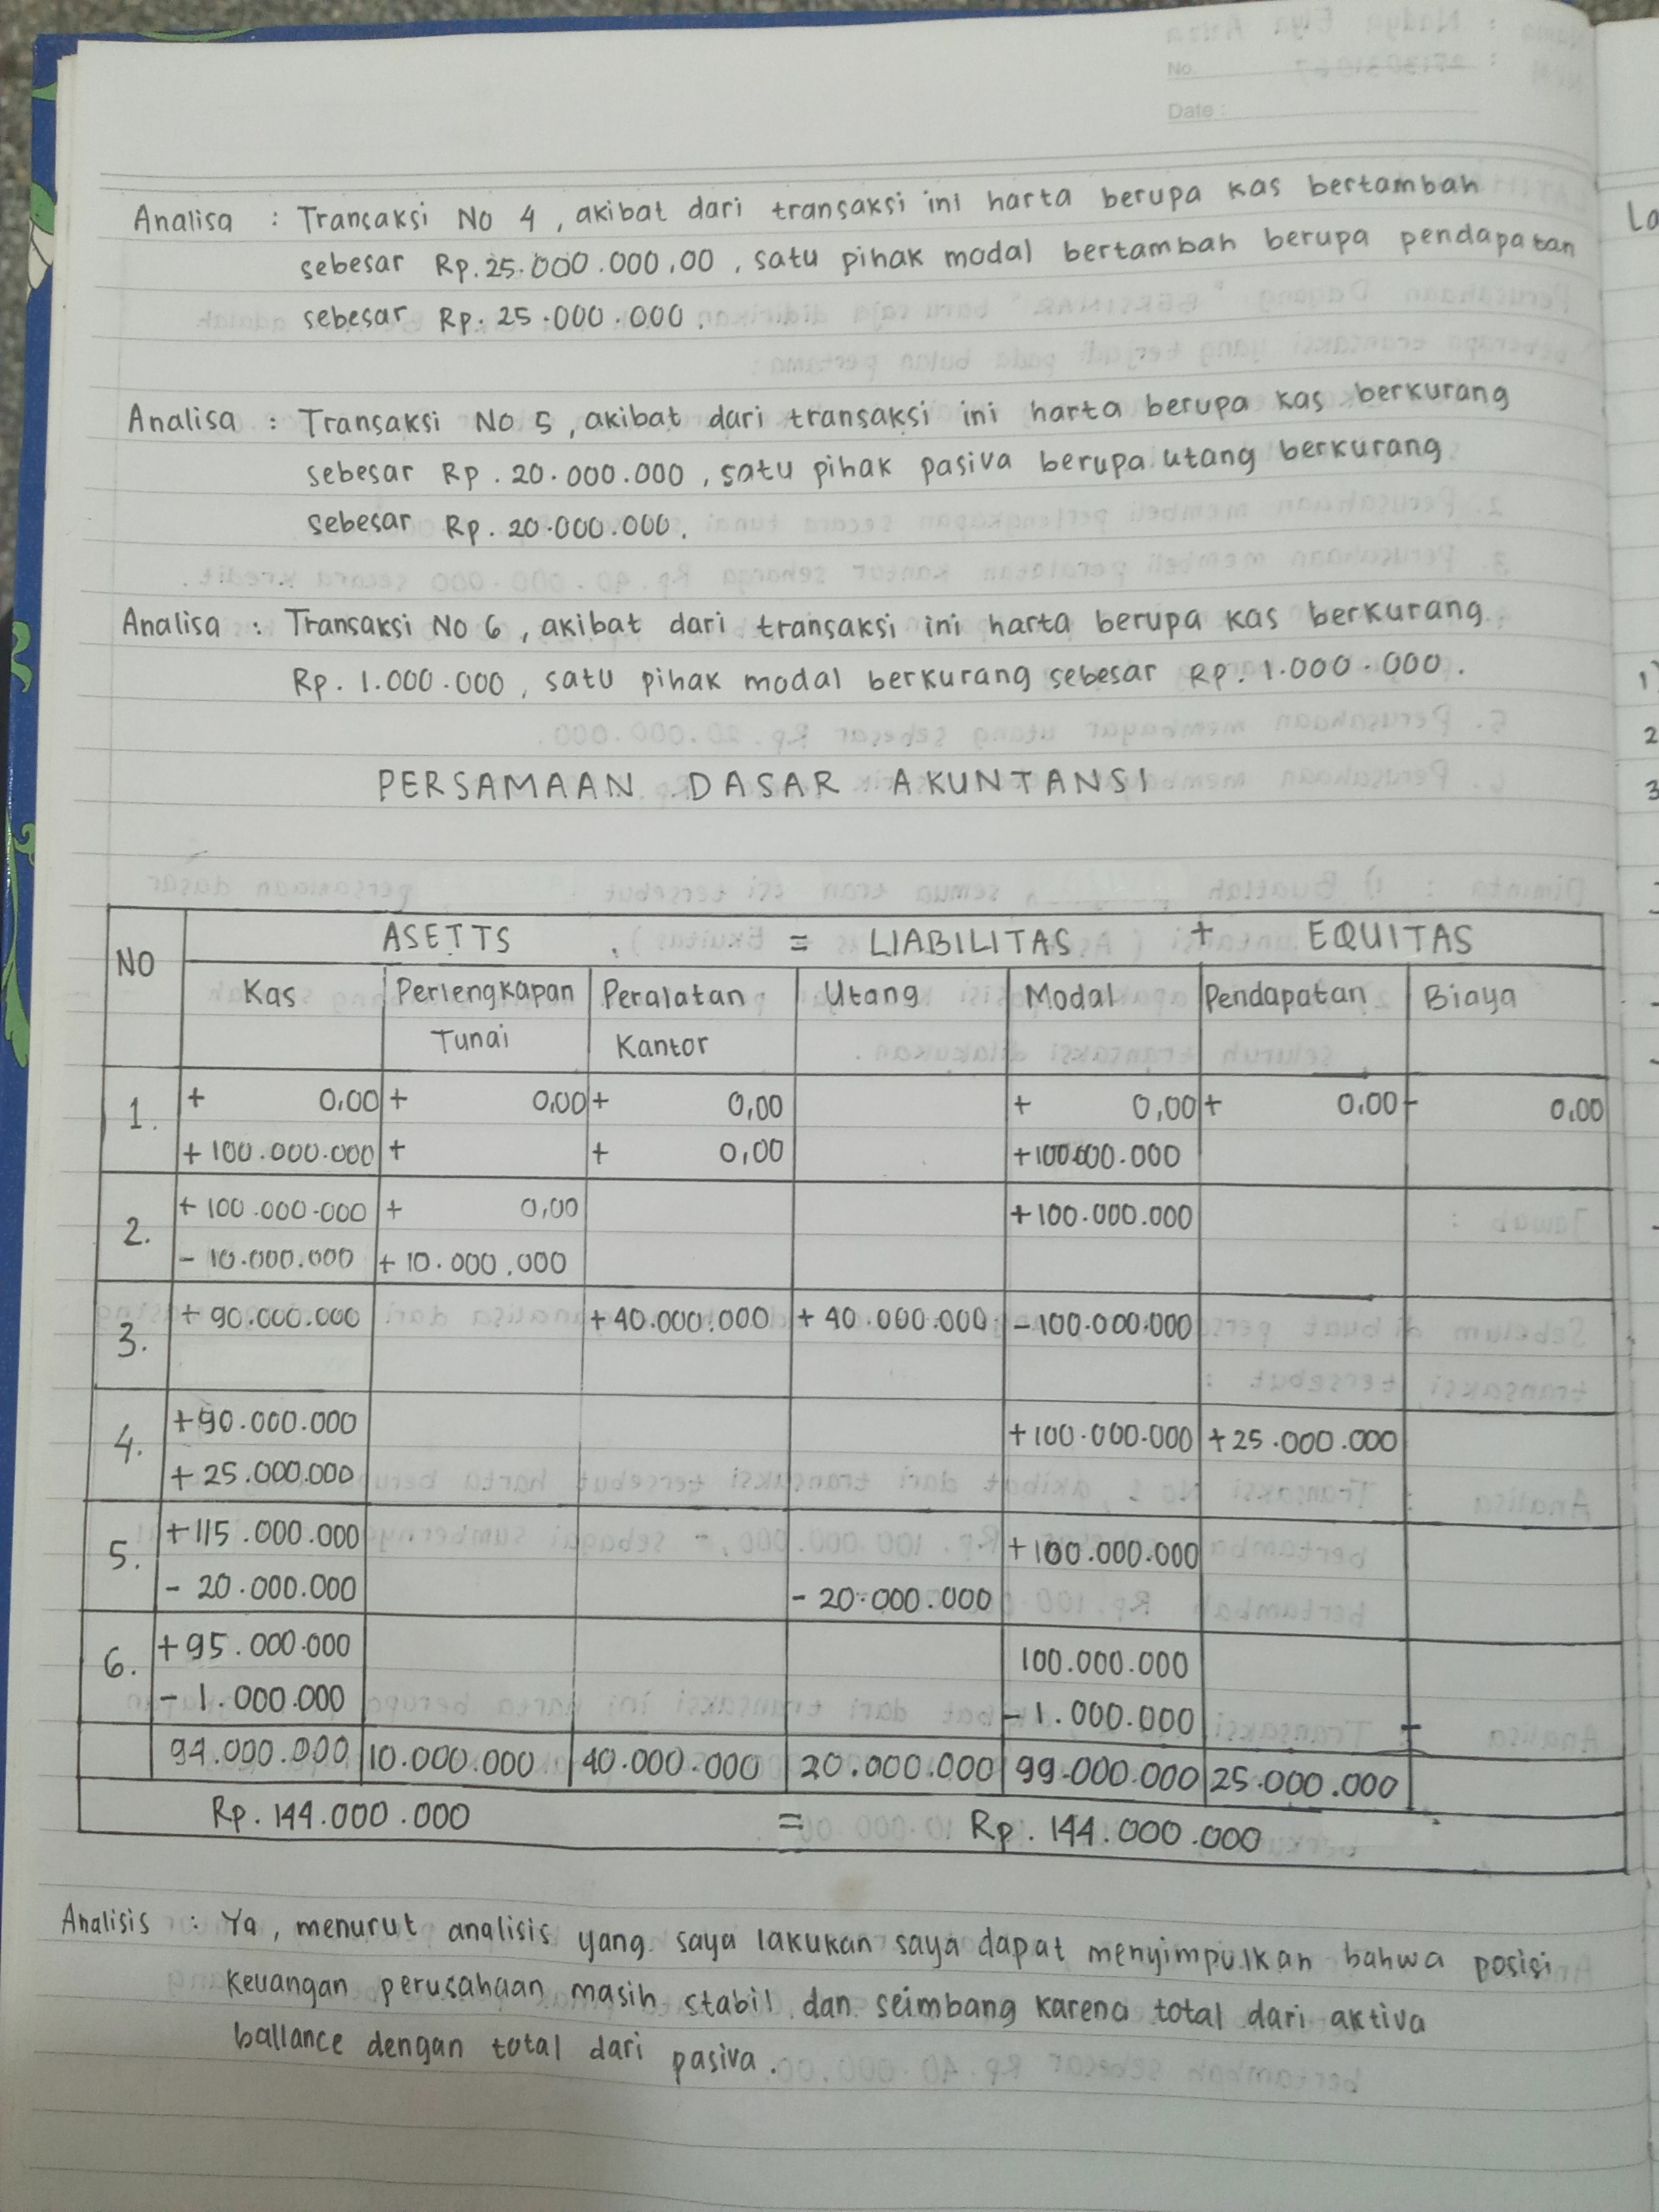 No.
Date :
Analisa : Trancaksi No 4, akibat dari transaksi ini harta berupa kas bertambah
sebesar Rp. 25.000.000,00, satu pihak modal bertambah berupa pendapatan
sebesar Rp. 25.000.000.
Analisa : Transaksi No 5, akibat dari transaksi ini harta berupa kas berkurang
sebesar Rp. 20.000.000, satu pihak pasiva berupa utang berkurang
sebesar Rp. 20.000.000.
Analisa : Transaksi No 6, akibat dari transaksi ini harta berupa kas berkurang
Rp. 1.000.000, satu pihak modal berkurang sebesar Rp. 1.000.000.
PERSAMAAN DASAR AKUNTANSI
NO ASETTS = LIABILITAS + EQUITAS
Kas Perlengkapan Peralatan Utang Modal Pendapatan Biaya
Tunai Kantor
1. + 0,00 + 0,00 + 0,00 + 0,00 + 0,00 - 0,00
+ 100.000.000 + + 0,00 + 100.000.000
2. + 100.000.000 + 0,00 + 100.000.000
- 10.000.000 + 10.000.000
3. + 90.000.000 + 40.000.000 + 40.000.000 - 100.000.000
4. + 90.000.000 + 100.000.000 + 25.000.000
+ 25.000.000
5. + 115.000.000 + 100.000.000
- 20.000.000 - 20.000.000
6. + 95.000.000 100.000.000
- 1.000.000 - 1.000.000
94.000.000 10.000.000 40.000.000 20.000.000 99.000.000 25.000.000
Rp. 144.000.000 = Rp. 144.000.000
Analisis : Ya, menurut analisis yang saya lakukan saya dapat menyimpulkan bahwa posisi
keuangan perusahaan masih stabil dan seimbang karena total dari aktiva
ballance dengan total dari pasiva.
La
1)
2
3